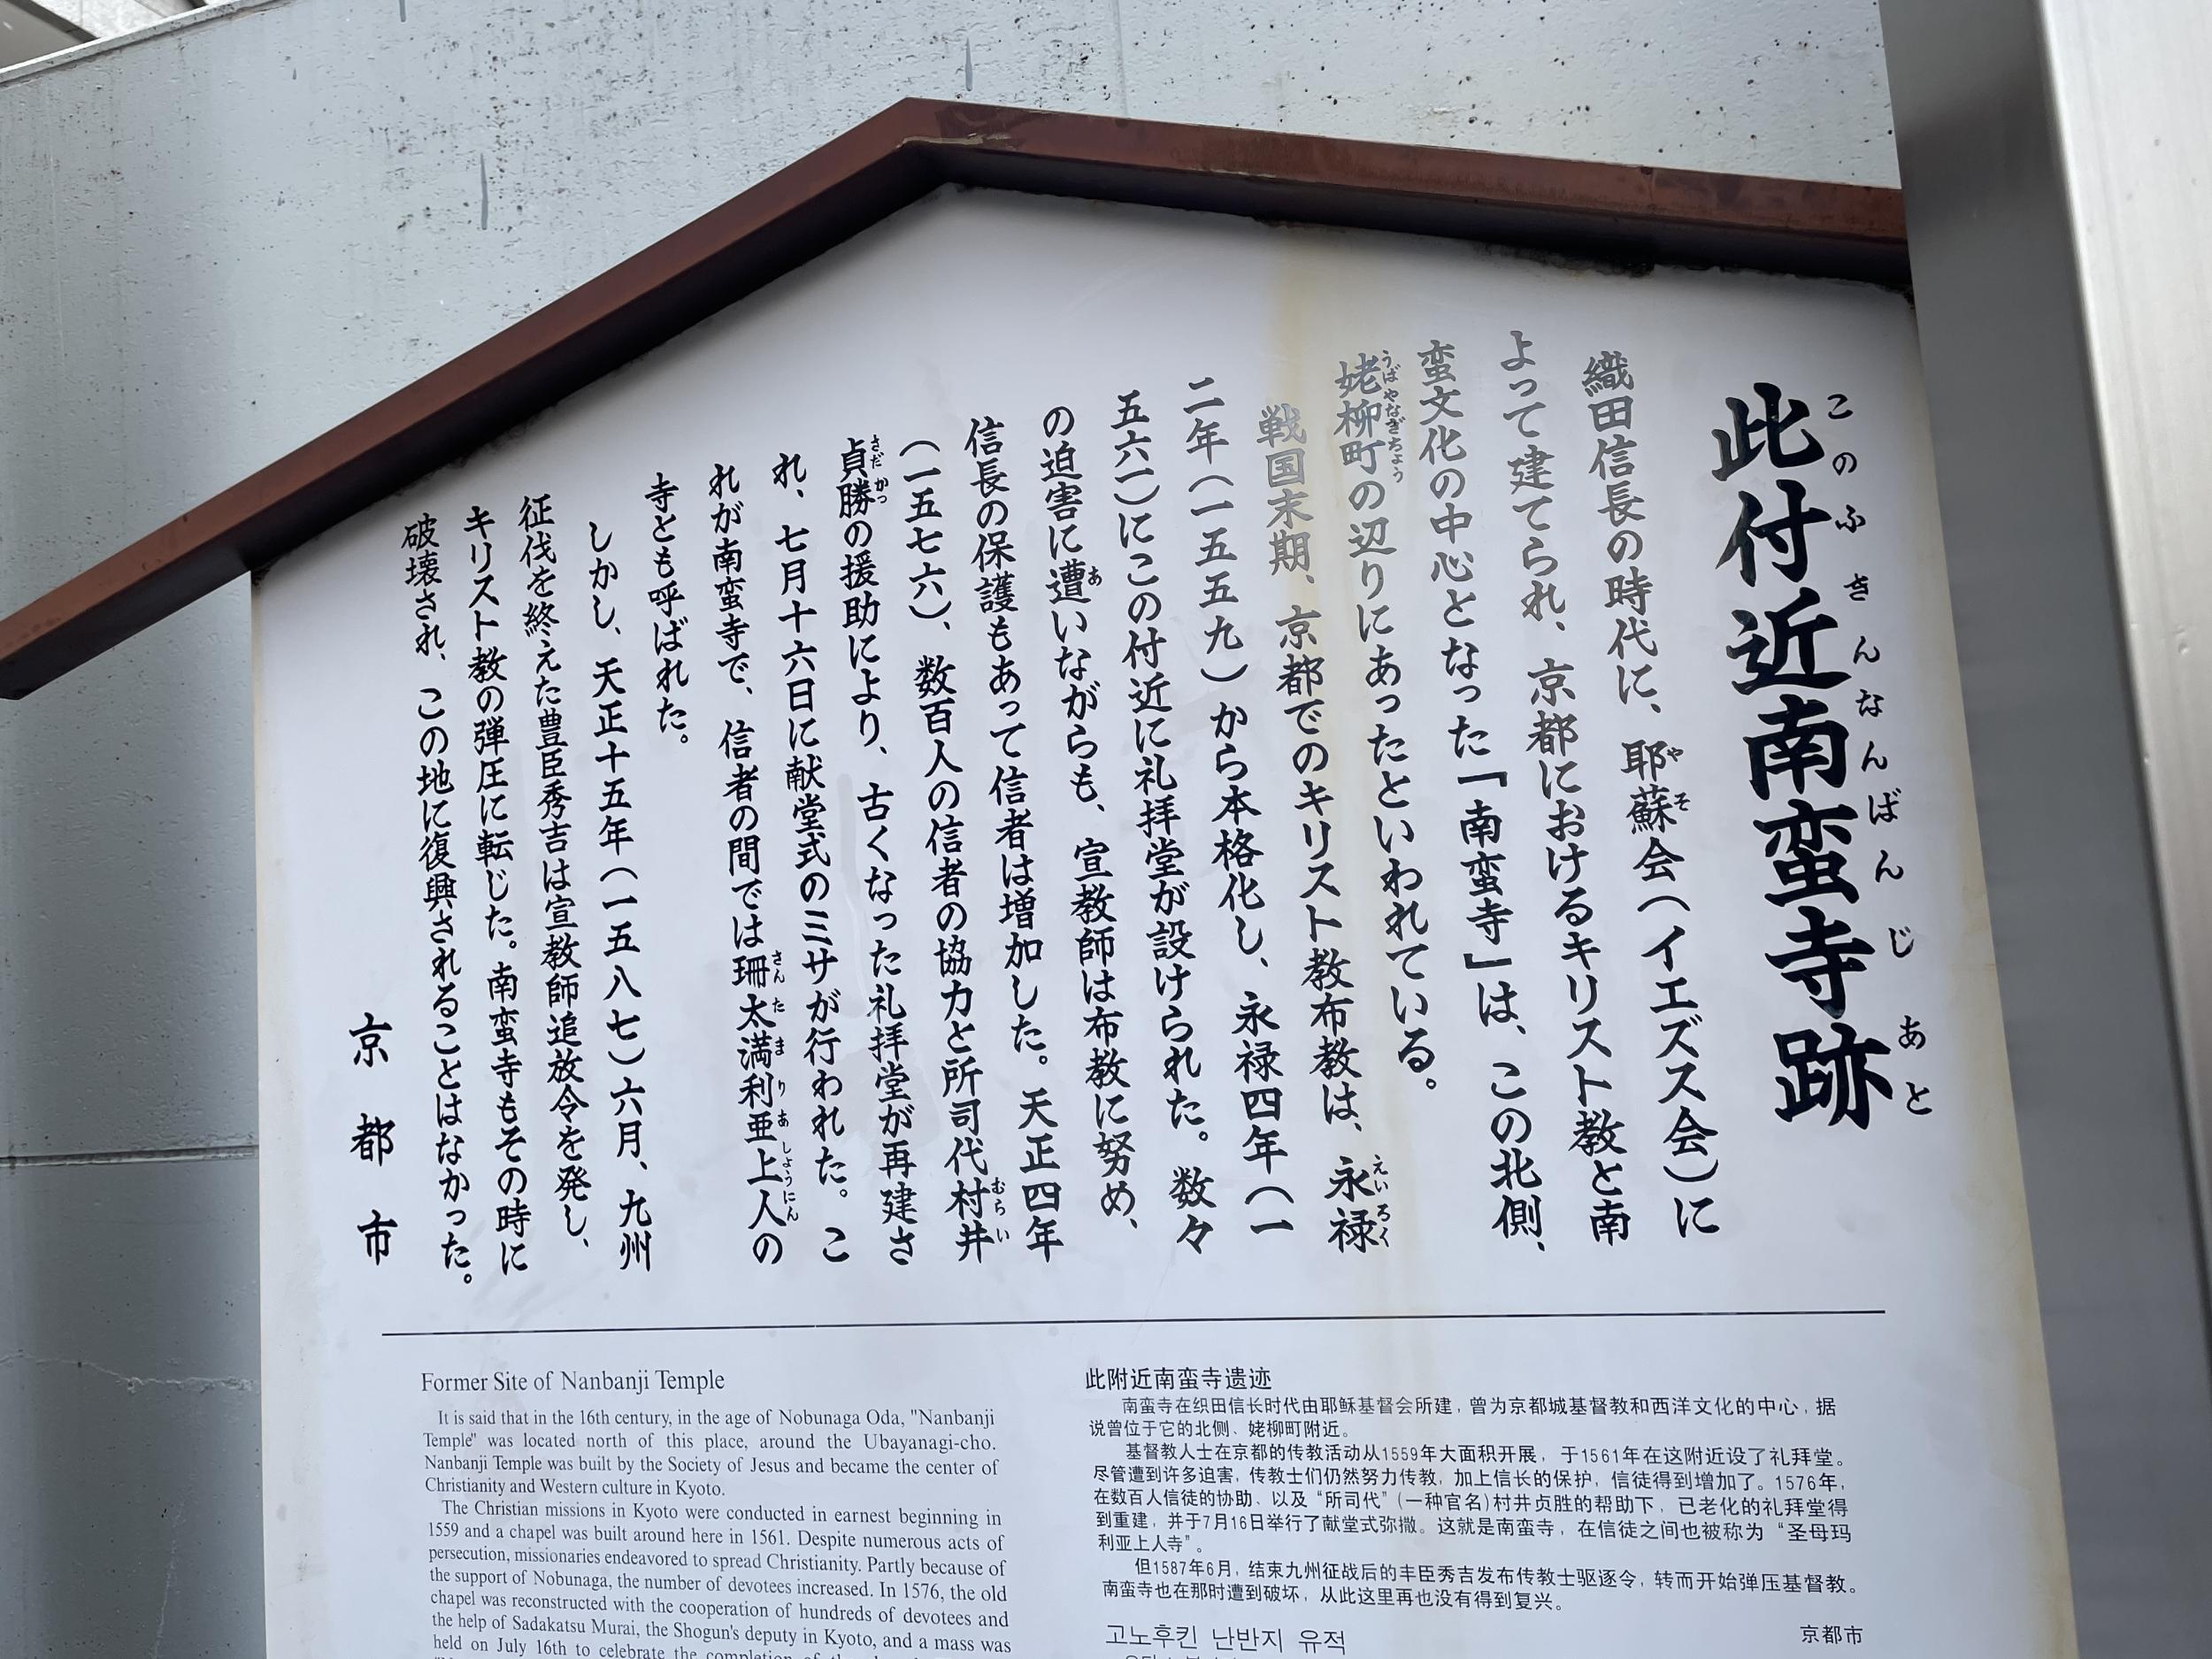 此付近南蛮寺跡
このふきんなんばんじあと
織田信長の時代に、耶蘇会(イエズス会)に
よって建てられ、京都におけるキリスト教と南
蛮文化の中心となった「南蛮寺」は、この北側、
姥柳町の辺りにあったといわれている。
戦国末期、京都でのキリスト教布教は、永禄
二年(一五五九)から本格化し、永禄四年(一
五六一)にこの付近に礼拝堂が設けられた。数々
の迫害に遭いながらも、宣教師は布教に努め、
信長の保護もあって信者は増加した。天正四年
(一五七六)、数百人の信者の協力と所司代村井
貞勝の援助により、古くなった礼拝堂が再建さ
れ、七月十六日に献堂式のミサが行われた。こ
れが南蛮寺で、信者の間では珊太満利亜上人の
寺とも呼ばれた。
しかし、天正十五年(一五八七)六月、九州
征伐を終えた豊臣秀吉は宣教師追放令を発し、
キリスト教の弾圧に転じた。南蛮寺もその時に
破壊され、この地に復興されることはなかった。
京都市
Former Site of Nanbanji Temple
It is said that in the 16th century, in the age of Nobunaga Oda, "Nanbanji
Temple" was located north of this place, around the Ubayanagi-cho.
Nanbanji Temple was built by the Society of Jesus and became the center of
Christianity and Western culture in Kyoto.
The Christian missions in Kyoto were conducted in earnest beginning in
1559 and a chapel was built around here in 1561. Despite numerous acts of
persecution, missionaries endeavored to spread Christianity. Partly because of
the support of Nobunaga, the number of devotees increased. In 1576, the old
chapel was reconstructed with the cooperation of hundreds of devotees and
the help of Sadakatsu Murai, the Shogun's deputy in Kyoto, and a mass was
held on July 16th to celebrate the completion of the
此附近南蛮寺遗迹
南蛮寺在织田信长时代由耶稣基督会所建，曾为京都城基督教和西洋文化的中心，据
说曾位于它的北侧、姥柳町附近。
基督教人士在京都的传教活动从1559年大面积开展，于1561年在这附近设了礼拜堂。
尽管遭到许多迫害，传教士们仍然努力传教，加上信长的保护，信徒得到增加了。1576年，
在数百人信徒的协助、以及“所司代”(一种官名)村井贞胜的帮助下，已老化的礼拜堂得
到重建，并于7月16日举行了献堂式弥撒。这就是南蛮寺，在信徒之间也被称为“圣母玛
利亚上人寺”。
但1587年6月，结束九州征战后的丰臣秀吉发布传教士驱逐令，转而开始弹压基督教。
南蛮寺也在那时遭到破坏，从此这里再也没有得到复兴。
京都市
고노후킨 난반지 유적